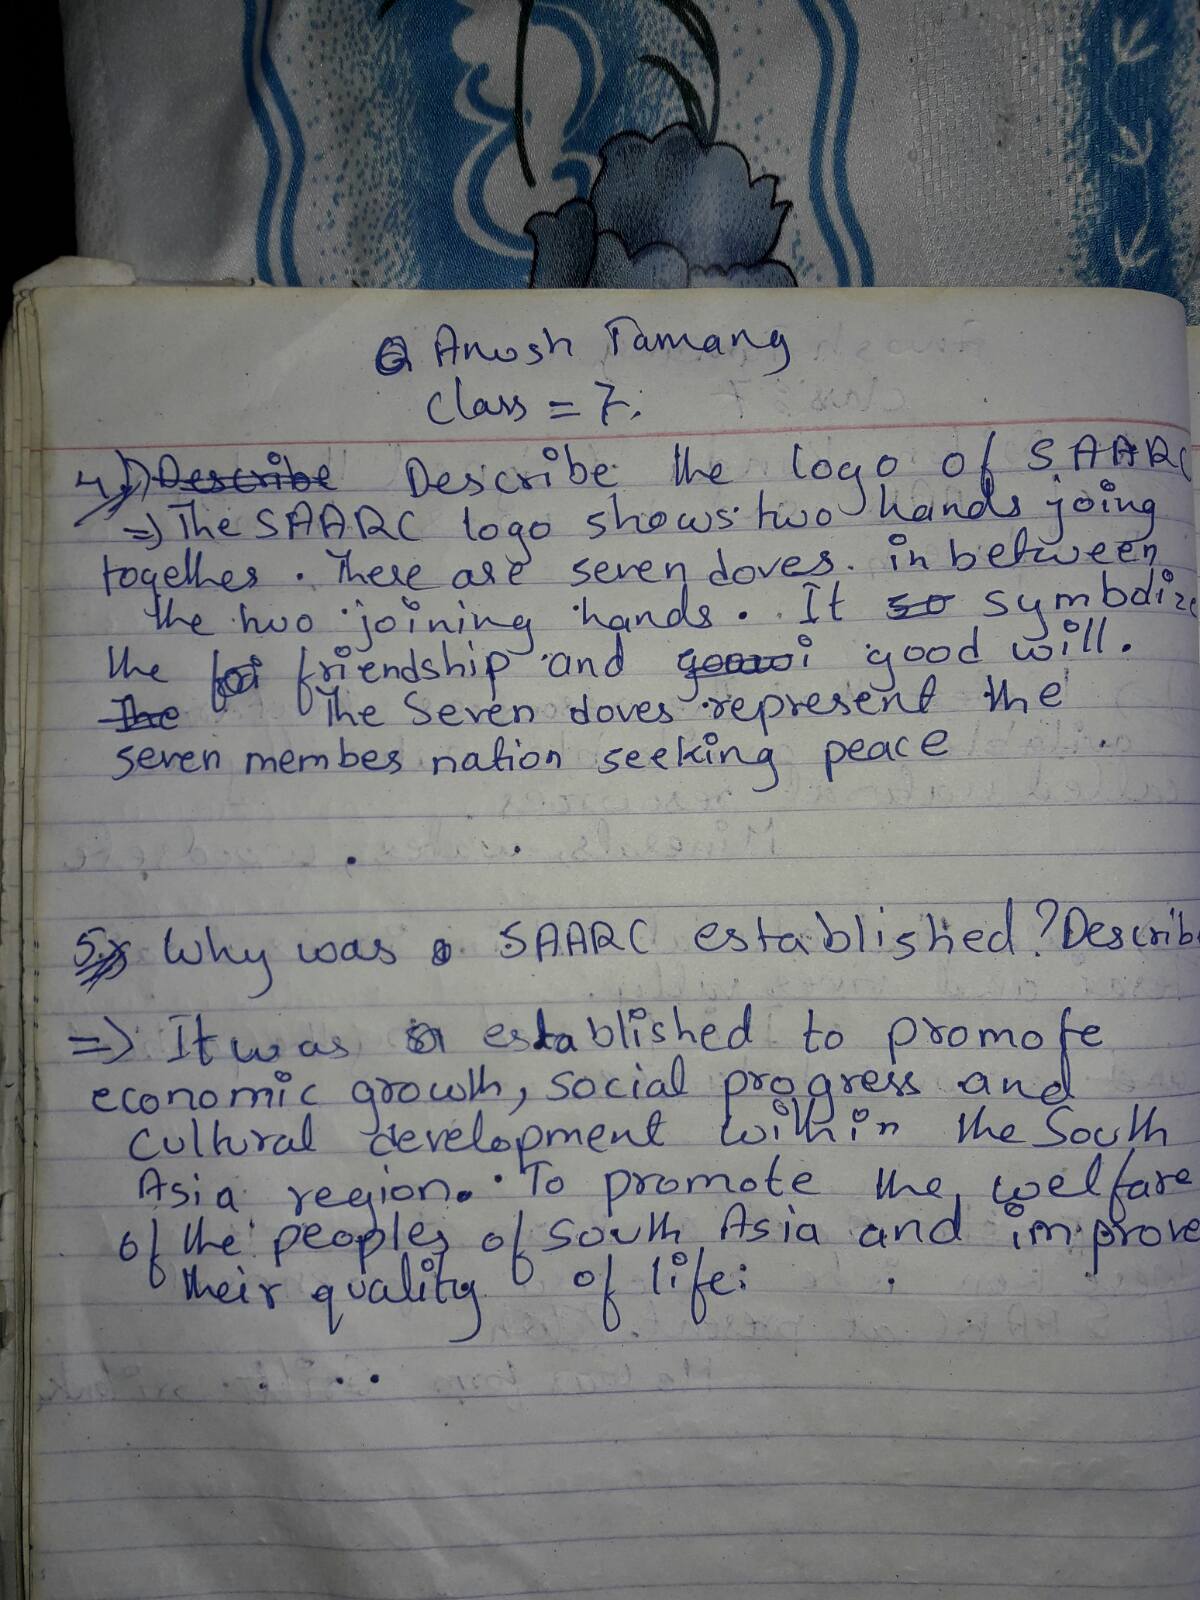 Anush Tamang
Class = 7.
4.) Describe Describe the logo of SAARC
=> The SAARC logo shows two hands joing
together. There are seven doves. in between
the two joining hands. It so symbolize
the foi friendship and good will.
The The Seven doves represent the
seven member nation seeking peace
5.) Why was SAARC established? Describe
=> It was established to promote
economic growth, social progress and
cultural development within the South
Asia region. To promote the welfare
of the peoples of South Asia and improve
their quality of life: